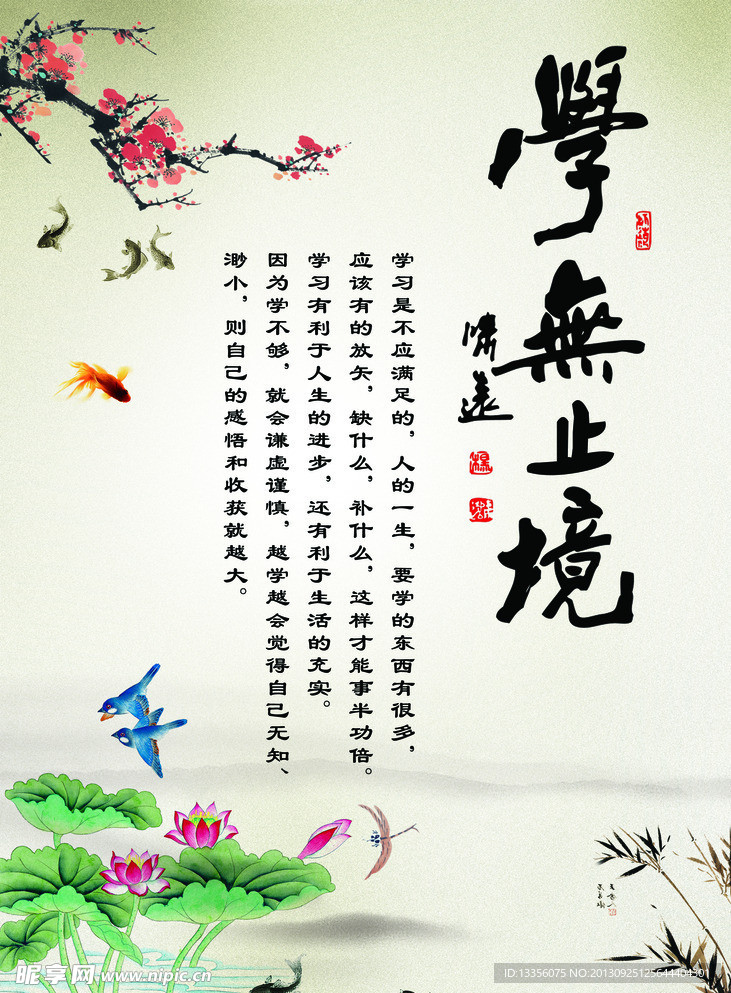 學無止境
学习是不应满足的，人的一生，要学的东西有很多，
应该有的放矢，缺什么，补什么，这样才能事半功倍。
学习有利于人生的进步，还有利于生活的充实。
因为学不够，就会谦虚谨慎，越学越会觉得自己无知、
渺小，则自己的感悟和收获就越大。
昵享网 www.nipic.cn
ID:13356075 NO:20130925125644404301